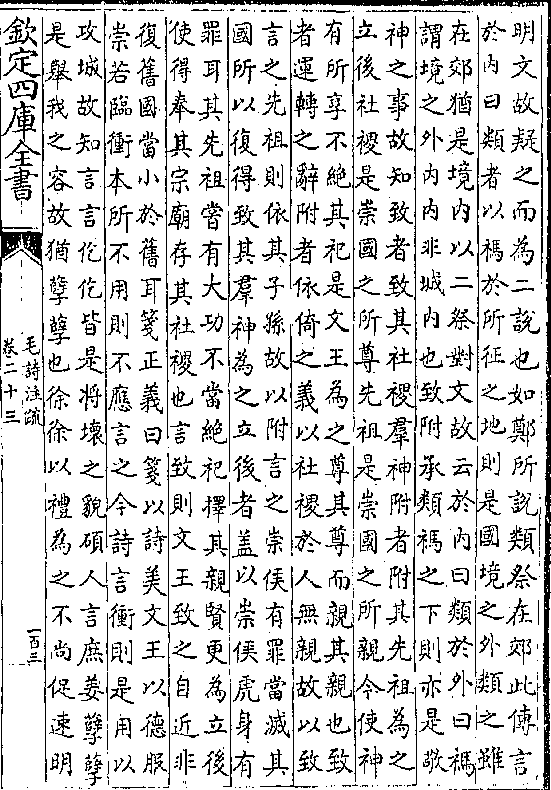 明文故疑之而為二說也如鄭所說類祭在郊此傳言
於内曰類者以禡於所征之地則是國境之外類之雖
在郊猶是境内以二祭對文故云於内曰類於外曰禡
謂境之外内内非城内也致附承類禡之下則亦是敬
神之事故知致者致其社稷羣神附者附其先祖為之
立後社稷是崇國之所尊先祖是崇國之所親今使神
有所享不絶其祀是文王為之尊其尊而親其親也致
者運轉之辭附者依倚之義以社稷於人無親故以致
言之先祖則依其子孫故以附言之崇侯有罪當滅其
國所以復得致其羣神為之立後者蓋以崇侯虎身有
罪耳其先祖嘗有大功不當絶祀擇其親賢更為立後
使得奉其宗廟存其社稷也言致則文王致之自近非
復舊國當小於舊耳箋正義曰箋以詩美文王以德服
崇若臨衝本所不用則不應言之今詩言衝則是用以
攻城故知言言仡仡皆是將壞之貌碩人言庶姜孽孽
是舉我之容故猶孽孽也徐徐以禮為之不尚促速明
欽定四庫全書
毛詩注疏
卷二十三
一百三